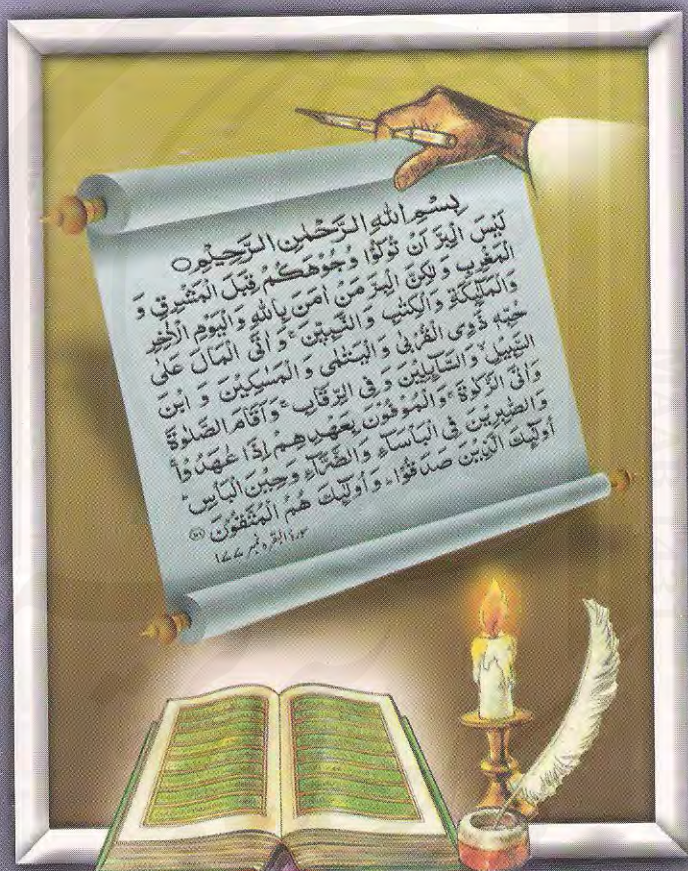 بِسْمِ اللهِ الرَّحْمٰنِ الرَّحِيْمِ ○
لَيْسَ الْبِرَّ اَنْ تُوَلُّوْا وُجُوْهَكُمْ قِبَلَ الْمَشْرِقِ وَ
الْمَغْرِبِ وَ لٰكِنَّ الْبِرَّ مَنْ اٰمَنَ بِاللهِ وَ الْيَوْمِ الْاٰخِرِ
وَ الْمَلٰٓئِكَةِ وَ الْكِتٰبِ وَ النَّبِيّٖنَ ۚ وَ اٰتَى الْمَالَ عَلٰى
حُبِّهٖ ذَوِى الْقُرْبٰى وَ الْيَتٰمٰى وَ الْمَسٰكِيْنَ وَ ابْنَ
السَّبِيْلِ ۙ وَ السَّآئِلِيْنَ وَ فِى الرِّقَابِ ۚ وَ اَقَامَ الصَّلٰوةَ
وَ اٰتَى الزَّكٰوةَ ۚ وَ الْمُوْفُوْنَ بِعَهْدِهِمْ اِذَا عٰهَدُوْا ۚ
وَ الصّٰبِرِيْنَ فِى الْبَاْسَآءِ وَ الضَّرَّآءِ وَ حِيْنَ الْبَاْسِ ؕ
اُولٰٓئِكَ الَّذِيْنَ صَدَقُوْا ؕ وَ اُولٰٓئِكَ هُمُ الْمُتَّقُوْنَ
سورۃ البقرہ نمبر ۱۷۷